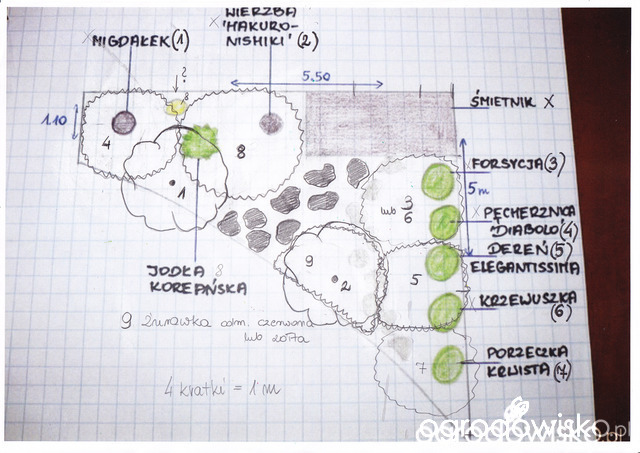 MIGDAŁEK (1)
WIERZBA
'HAKURO-
NISHIKI' (2)
?
8
5.50
1.10
ŚMIETNIK X
4
8
1
FORSYCJA (3)
5m
lub 3
6
PĘCHERZNICA
'DIABOLO' (4)
DEREŃ (5)
ELEGANTISSIMA
9
2
5
JODŁA 8
KOREAŃSKA
KRZEWUSZKA
(6)
9 Żurawka odm. czerwona
lub żółta
PORZECZKA
KRWISTA (7)
7
4 kratki = 1m
ogrodowisko.pl
ogrodowisko.pl